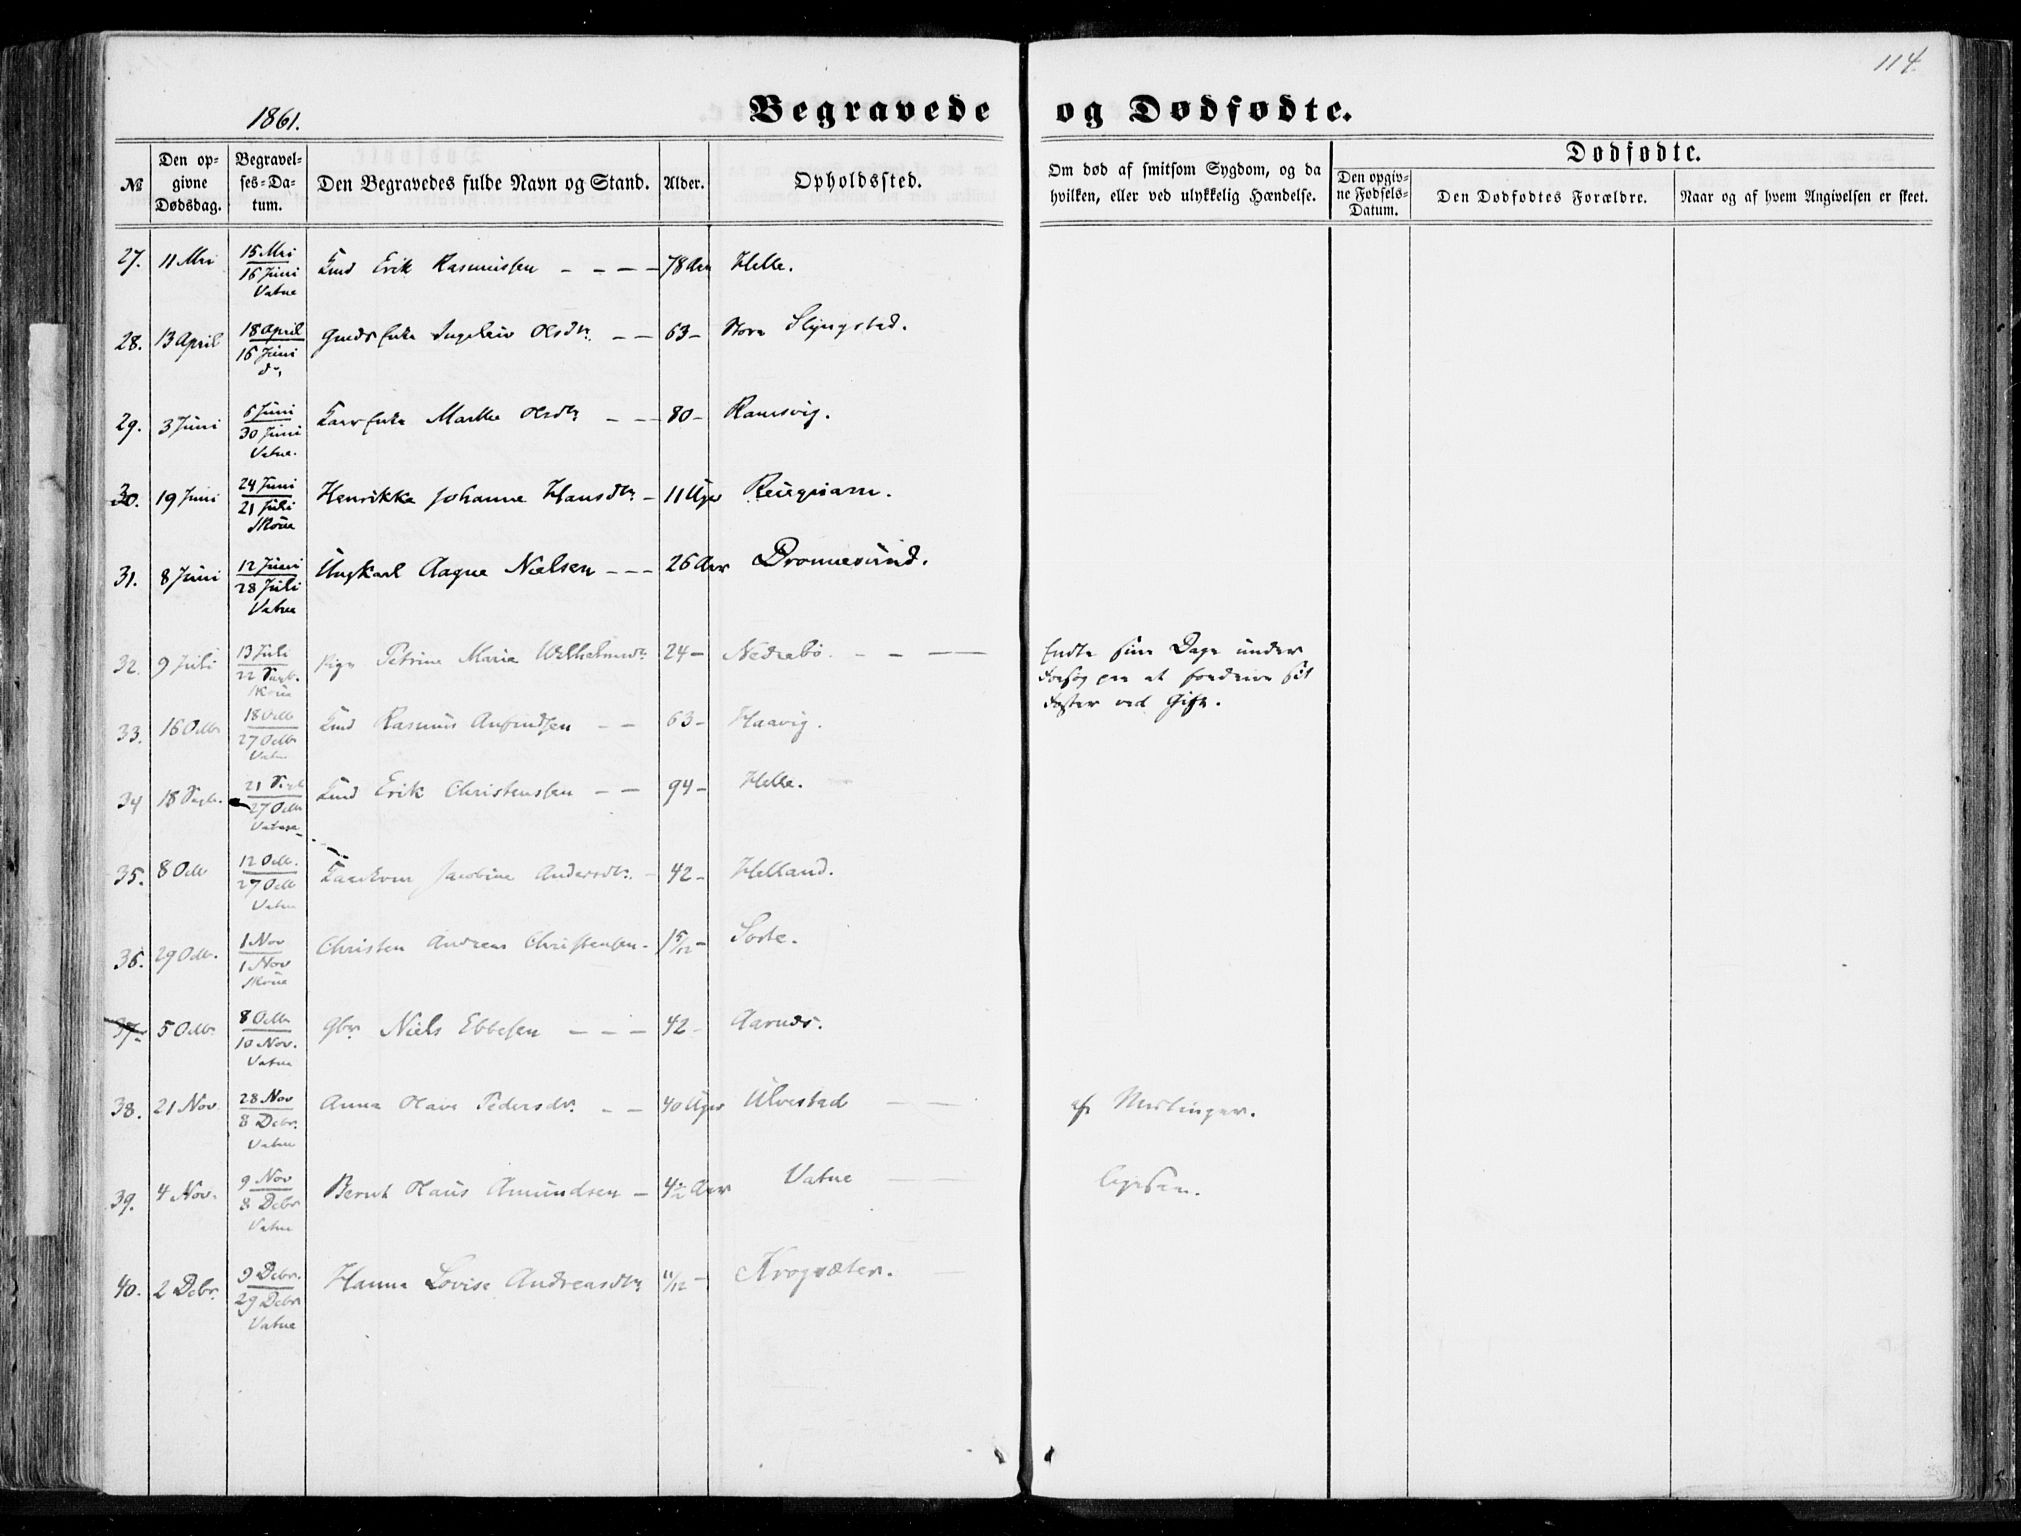 114.
1861.
Begravede og Dødfødte.
№
Den opgivne Dødsdag.
Begravelses-Datum.
Den Begravedes fulde Navn og Stand.
Alder.
Opholdssted.
Om død af smitsom Sygdom, og da hvilken, eller ved ulykkelig Hændelse.
Dødfødte.
Den opgivne Fødsels-Datum.
Den Dødfødtes Forældre.
Naar og af hvem Angivelsen er skeet.
27. 11 Mai 15 Mai / 16 Juni Vatne Erik Rasmussen - - - - 78 Aar Helle.
28. 13 April 18 April / 16 Juni do, Ingeleiv Olsdtr. - - 63 - Store Slyngstad.
29. 3 Juni 6 Juni / 30 Juni Vatne. Marthe Olsdtr - - - 80 - Ramsvig.
30. 19 Juni 24 Juni / 21 Juli Skoue Henrikke Johanne Hansdtr - 11 Uger
31. 8 Juni 12 Juni / 28 Juli Vatne Ungkarl Aagne Nielsen - - - 26 Aar Dronnesund.
32. 9 Juli 13 Juli / 22 Septb. Skoue Pige Petrine Marie Wilhelmsdtr 24 - Nedrebø. - - - Endte sine Dage under
Forsøg paa at fordrive sit
Foster ved Gift.
33. 16 Octb 18 Octb / 27 Octb Vatn Rasmus Anfindsen - - 63 - Haavig.
34 18 Septb. 21 Septb / 27 Octb Vatne Erik Christenssen - - 94 - Helle.
35. 8 Octb 12 Octb. / 27 Octb Vatne Jacobine Andersdtr. - 42 - Helland.
36. 29 Octb. 1 Nov / 1 Nov Skoue Christen Andreas Christensen - 1 5/12 - Sorte.
37. 5 Octb. 8 Octb / 10 Nov. Vatne Gbr. Niels Ebbesen - - - 42 - Aarnes.
38. 21 Nov 28 Nov / 8 Debr. Vatne Anna Olave Pedersdr. - - 40 Uger Ulvestad - - af Meslinger.
39. 4 Nov. 9 Nov / 8 Debr Vatne Bernt Olaus Amundsen - 4½ Aar Vatne - - ligesaa.
40. 2 Debr. 9 Debr. / 29 Debr Vatne Hanna Lovise Andreasdtr 11/12 - Krogsæter. -